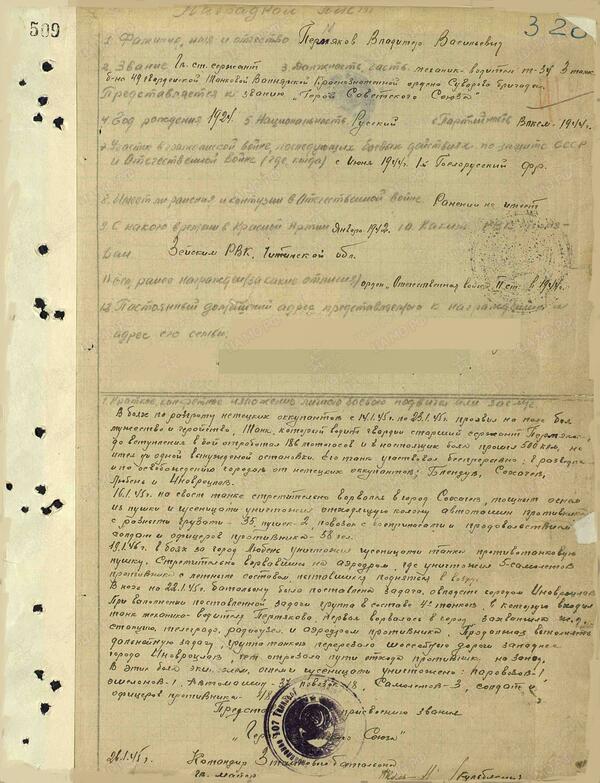 509
320
Наградной лист
1. Фамилия, имя и отчество Пермяков Владимир Васильевич
2. Звание гв. ст. сержант 3. Должность, часть механик-водитель т-34 3 танк.
б-на 49 гвардейской танковой Вапнярской Краснознаменной ордена Суворова бригады
Представляется к званию "Герой Советского Союза"
4. Год рождения 1924 5. Национальность Русский 6. Партийность ВЛКСМ - 1944
7. Участие в гражданской войне, последующих боевых действиях по защите СССР
и Отечественной войне (где, когда) с июня 1944г. 1й Белорусский фр.
8. Имеет ли ранения и контузии в Отечественной войне Ранений не имеет
9. С какого времени в Красной Армии Январь 1942. 10. Каким РВК
Зейским РВК, Читинской обл.
11. Чем ранее награжден (за какие отличия) орден "Отечественная война II ст." в 1944г.
12. Постоянный домашний адрес представляемого к награждению и
адрес его семьи.
1. Краткое, конкретное изложение личного боевого подвига или заслуг
В боях по разгрому немецких оккупантов с 14.1.45г. по 23.1.45г. проявил на поле боя
мужество и геройство. Танк, который водит гвардии старший сержант Пермяков,
до вступления в бой отработал 186 моточасов и в настоящих боях прошел 500 км, не
имея ни одной вынужденной остановки. Его танк участвовал беспрерывно в разведке
и по освобождению городов от немецких оккупантов: Блендув, Сохачев,
Любень и Иновроцлов.
16.1.45г. на своем танке стремительно ворвался в город Сохачев, мощным огнем
из пушки и гусеницами уничтожил отходящую колону автомашин противника
с разными грузами - 35 пушек - 2, повозок с боеприпасами и продовольствием
солдат и офицеров противника - 58 чел.
19.1.45г. в боях за город Любень уничтожил гусеницами танка противотанковую
пушку. Стремительно ворвавшись на аэродром, где уничтожил 5 самолетов
противника с летным составом, пытавшихся подняться в воздух.
В ночь на 22.1.45г. батальону была поставлена задача, овладеть городом Иновроцлов
При выполнении поставленной задачи группа в составе 4х танков, в которую входил
танк механика-водителя Пермякова, первая ворвалась в город, захватила ж.д.
станцию, телеграф, радиоузел и аэродром противника. Продолжая выполнять
дальнейшую задачу, группа танков перерезала шоссейную дорогу западнее
города Иновроцлов, тем отрезала пути отхода противнику на запад.
В этих боях экипажем, огнем и гусеницами уничтожено: паровозов - 1
эшелонов - 1, Автомашин - повозок - 18, Самолетов - 3, солдат и
офицеров противника - 48
присвоению звания
"Герой Советского Союза"
26.1.45г. Командир 3 танкового батальона
гв. майор